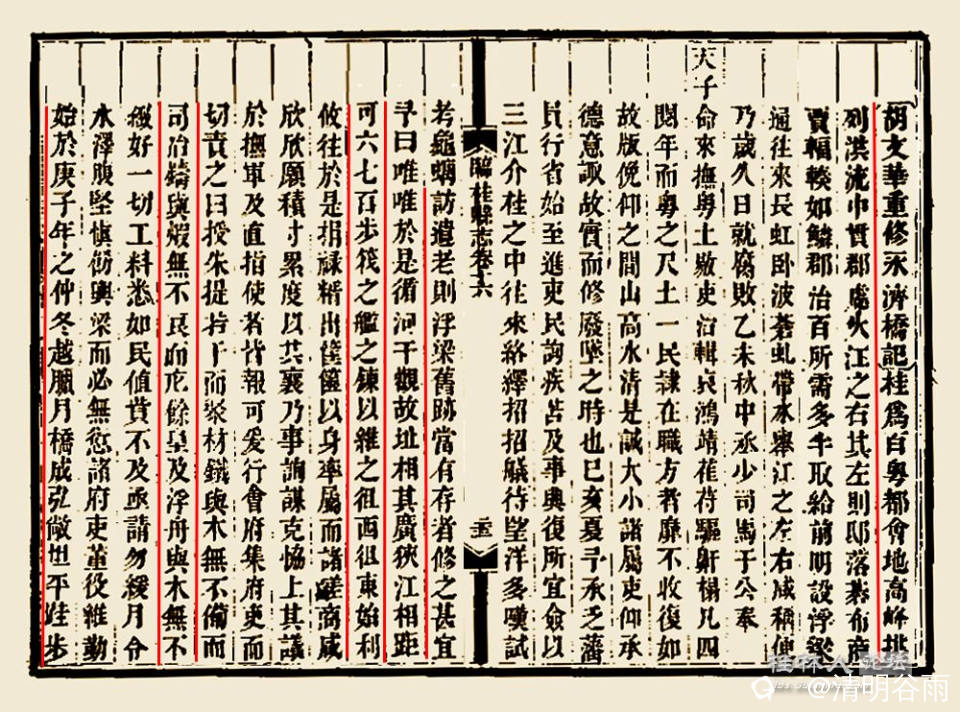 胡文華重修永濟橋記桂爲百粵都會地高峰排
列洪流中貫郡處火江之右其左則邸落碁布商
賈輻輳如鱗郡治百所需多半取給前明設浮梁
通往來長虹卧波蒼虬帶水舉江之左右咸稱便
乃歲久日就腐敗乙未秋中丞少司馬于公奉
天子命來撫粵土敷吏治輯哀鴻靖萑苻驅鼾榻凡四
閱年而粵之尺土一民隸在職方者靡不收復如
故版俛仰之間山高水清是誠大小諸屬吏仰承
德意諏故實而修廢墜之時也已亥夏予承乏藩
員行省始至進吏民詢疾苦及事與復所宜僉以
三江介桂之中往來絡繹招招艤待望洋多嘆試
臨桂縣志卷十六
考龜蠣訪遺老則浮梁舊跡當有存者修之甚宜
予曰唯唯於是循河干觀故址相其廣狹江相距
可六七百步筏之艦之鍊以維之徂西徂東始利
攸往於是捐祿糈出篋以身率屬而諸鹺商咸
欣欣願積寸累度以共襄乃事詢謀克恊上其議
於撫軍及直指使者皆報可爰行會府集府吏而
切責之曰授朱提若干而聚材鐵與木無不備而
司冶鑄與煅無不良而庀餘皇及浮舟與木無不
緻好一切工料悉如民值費不及亟請勿緩月令
水澤腹堅愼勿輿梁而必無愆諸府吏董役維勤
始於庚子年之仲冬越臘月橋成弘敞坦平跬步
桂林人论坛
@清明谷雨